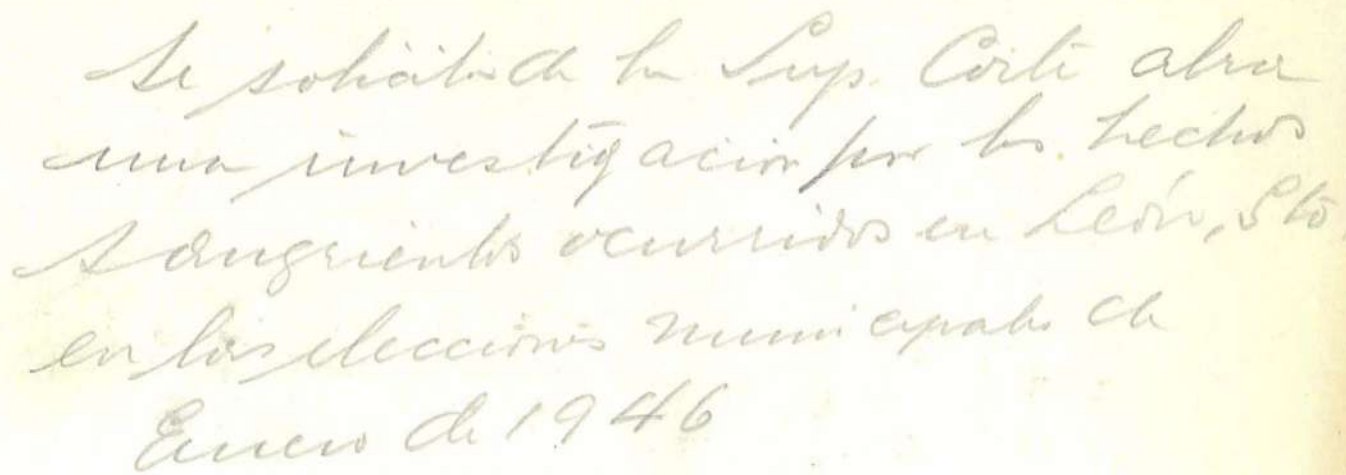 Se solicita de la Sup. Corte abra
una investigación por los hechos
sangrientos ocurridos en León, Gto.
en las elecciones municipales de
Enero de 1946